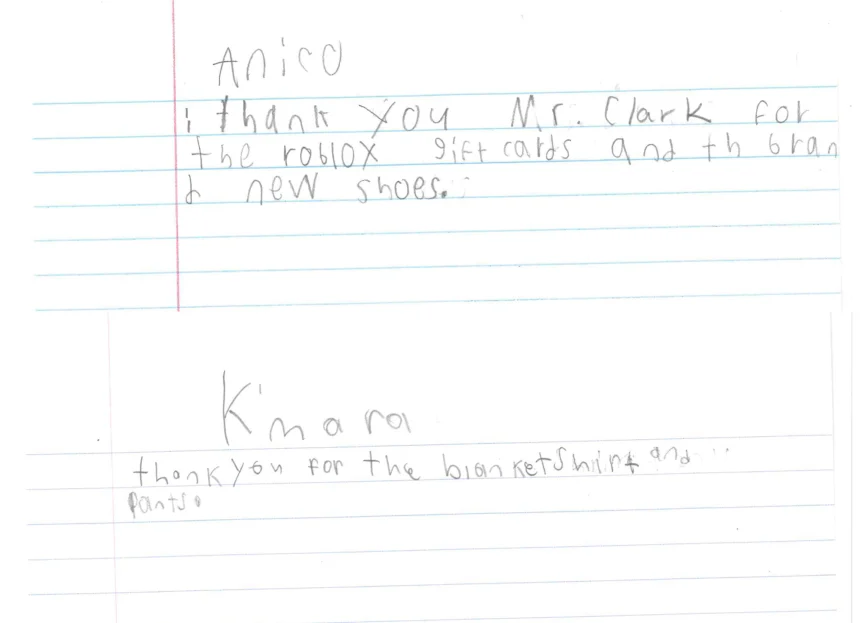 Anico
i thank you Mr. Clark for
the roblox gift cards and th bran
d new shoes.
K'mara
thank you for the blanket Shirt and
pants.